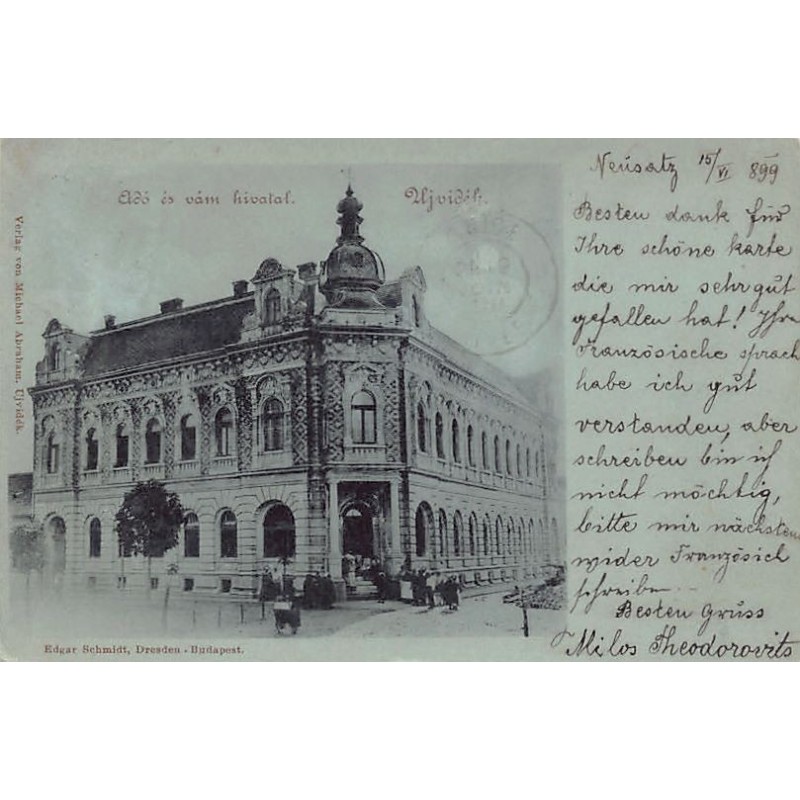 Adó és vám hivatal. Ujvidék.
Verlag von Michael Abraham, Ujvidék.
Edgar Schmidt, Dresden - Budapest.
Neusatz 15/VI 899
Besten dank für
Ihre schöne karte
die mir sehr gut
gefallen hat! Ihre
Französische sprach
habe ich gut
verstanden, aber
schreiben bin ich
nicht möchtig,
bitte mir nächsten
wider Französich
schreiben
Besten Gruss
Milos Theodorovits